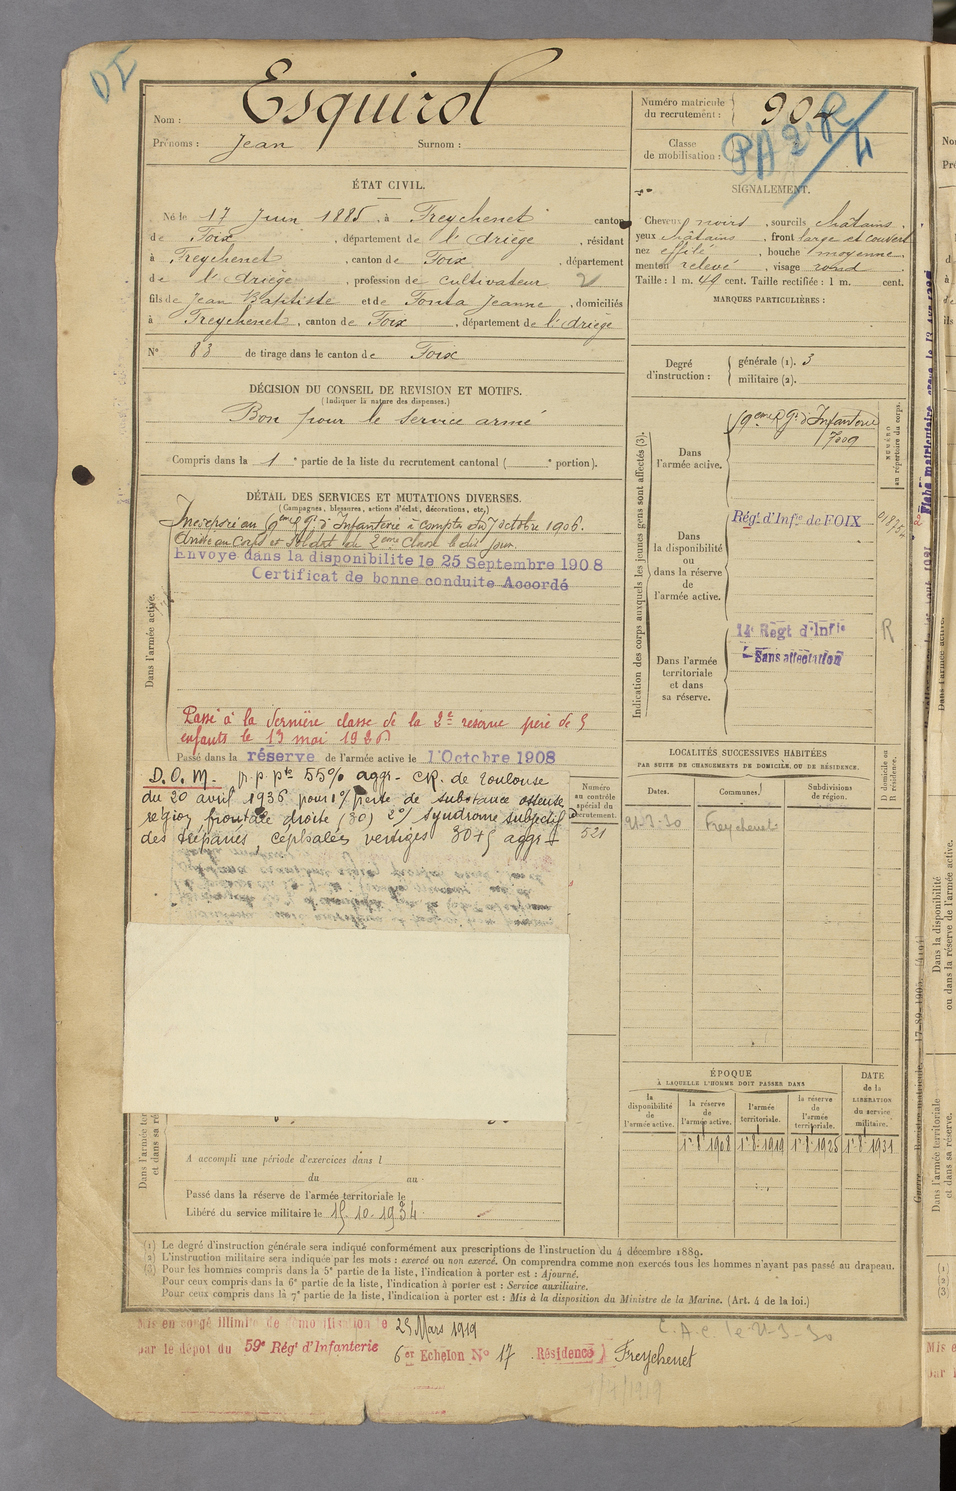 DI
Nom : Esquirol
Prénoms : Jean Surnom :
Numéro matricule
du recrutement : 904
Classe
de mobilisation :
ÉTAT CIVIL.
Né le 17 Juin 1885, à Freychenet canton
de Foix, département de l'Ariège, résidant
à Freychenet, canton de Foix, département
de l'Ariège, profession de cultivateur 2
fils de Jean Baptiste et de Fonta Jeanne, domiciliés
à Freychenet, canton de Foix, département de l'Ariège
N° 83 de tirage dans le canton de Foix
SIGNALEMENT.
Cheveux noirs, sourcils châtains,
yeux châtains, front large et couvert
nez effilé, bouche moyenne,
menton relevé, visage rond.
Taille : 1 m. 49 cent. Taille rectifiée : 1 m. cent.
MARQUES PARTICULIÈRES :
Degré
d'instruction :
générale (1). 3
militaire (2).
DÉCISION DU CONSEIL DE REVISION ET MOTIFS.
(Indiquer la nature des dispenses.)
Bon pour le service armé
Compris dans la 1e partie de la liste du recrutement cantonal ( e portion).
DÉTAIL DES SERVICES ET MUTATIONS DIVERSES.
(Campagnes, blessures, actions d'éclat, décorations, etc.)
Incorporé au 59eme Rgt d'Infanterie à compter du 7 octobre 1906.
Arrivé au Corps et Soldat de 2eme Classe le dit jour.
Envoyé dans la disponibilité le 25 Septembre 1908
Certificat de bonne conduite Accordé
Dans l'armée active.
Passé à la dernière classe de la 2e réserve père de 5
enfants le 13 mai 1926
Passé dans la réserve de l'armée active le 1 Octobre 1908
D.O.M. p.p. pte 55% aggr - CR. de Toulouse
du 20 avril 1936 pour 1°/ perte de substance osseuse
région frontale droite (30) 2°/ syndrome subjectif
des trépanés, céphalées vertiges 30+5 aggr
Indication des corps auxquels les jeunes gens sont affectés (3).
NUMÉRO
au répertoire du corps.
Dans
l'armée active.
59eme Rgt d'Infanterie
7009
Dans
la disponibilité
ou
dans la réserve
de
l'armée active.
Régt d'Infie de FOIX
Dans l'armée
territoriale
et dans
sa réserve.
14e Régt d'Infie
Sans affectation
R
LOCALITÉS SUCCESSIVES HABITÉES
PAR SUITE DE CHANGEMENTS DE DOMICILE OU DE RÉSIDENCE.
D domicile ou
R résidence.
Dates. Communes. Subdivisions
de région.
21-3-30 Freychenet
Numéro
au contrôle
spécial du
recrutement.
521
ÉPOQUE
À LAQUELLE L'HOMME DOIT PASSER DANS
la
disponibilité
de
l'armée active.
la réserve
de
l'armée active.
l'armée
territoriale.
la réserve
de
l'armée
territoriale.
DATE
de la
LIBÉRATION
du service
militaire.
1-8-1908 1-8-1919 1-8-1925 1-8-1931
A accompli une période d'exercices dans l
du au
Passé dans la réserve de l'armée territoriale le
Libéré du service militaire le 15.10.1934.
(1) Le degré d'instruction générale sera indiqué conformément aux prescriptions de l'instruction du 4 décembre 1889.
(2) L'instruction militaire sera indiquée par les mots : exercé ou non exercé. On comprendra comme non exercés tous les hommes n'ayant pas passé au drapeau.
(3) Pour les hommes compris dans la 5e partie de la liste, l'indication à porter est : Ajourné.
Pour ceux compris dans la 6e partie de la liste, l'indication à porter est : Service auxiliaire.
Pour ceux compris dans la 7e partie de la liste, l'indication à porter est : Mis à la disposition du Ministre de la Marine. (Art. 4 de la loi.)
Mis en congé illimité de démobilisation le 25 Mars 1919
par le dépôt du 59e Régt d'Infanterie 6e Echelon N° 17 Résidence) Freychenet
C.A.C. le 21-3-30